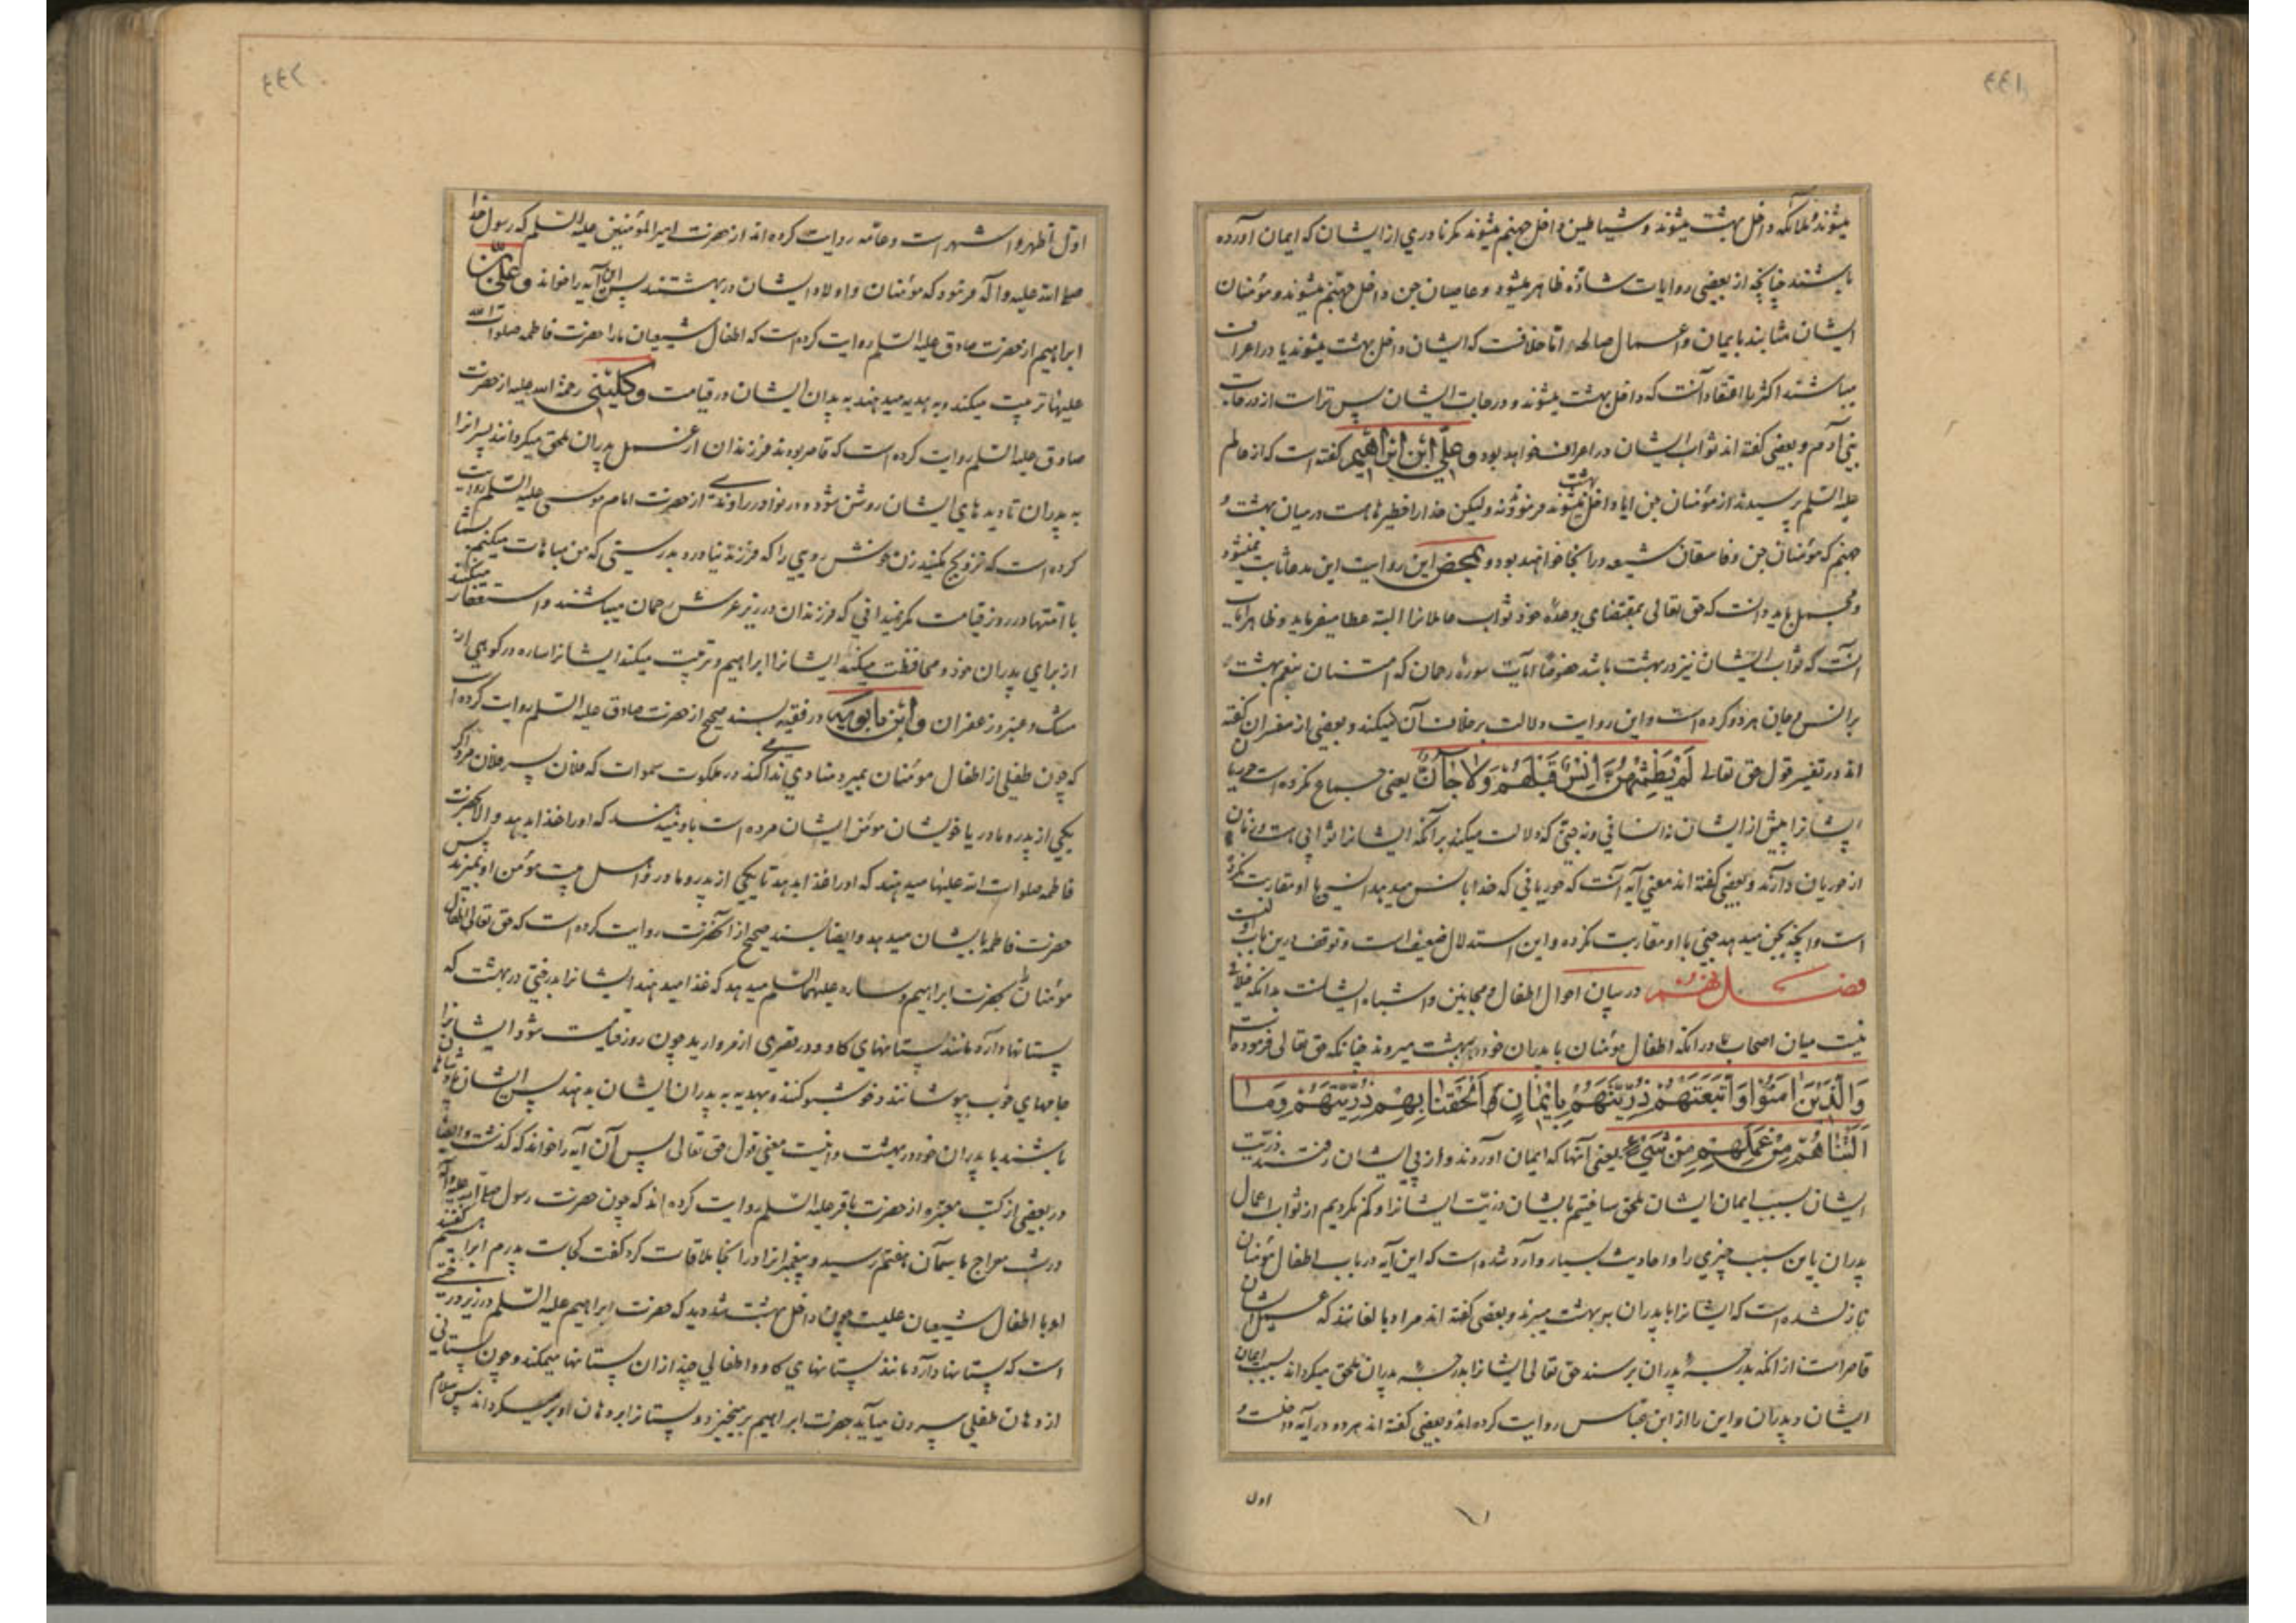 میشوند و ملائکه داخل بهشت میشوند و شیاطین داخل جهنم میشوند مکر نادری از ایشان که ایمان آورده
باشند چنانچه از بعضی روایات شاذه ظاهر میشود و عاصیان جن داخل جهنم میشوند و مؤمنان
ایشان مثابند بایمان و اعمال صالحه اما خلافست که ایشان داخل بهشت میشوند یا در اعراف
میباشند اکثر را اعتقاد آنست که داخل بهشت میشوند و درجات ایشان پس تر است از درجات
بنی آدم و بعضی گفته اند ثواب ایشان در اعراف خواهد بود و علی ابن ابراهیم کفته است که از عالم
علیه السلم پرسیدند از مؤمنان جن ایا داخل بهشت میشوند فرمودند نه ولیکن خدا را حظیرها هست در میان بهشت و
جهنم که مؤمنان جن و فاسقان شیعه در انجا خواهند بود و بمحض این روایت این مدعا ثابت نمیشود
و مجمل باید دانست که حق تعالی بمقتضای وعده خود ثواب عاملانرا البته عطا میفرماید و ظاهر آیات
آنست که ثواب ایشان نیز در بهشت باشد خصوصا آیات سوره رحمان که امتنان بنعیم بهشت
بر انس و جان هر دو کرده است و این روایت دلالت بر خلاف آن نمیکند و بعضی از مفسران کفته
اند در تفسیر قول حق تعالی لَمْ یَطْمِثْهُنَّ اِنْسٌ قَبْلَهُمْ وَلَا جَانٌّ یعنی جماع نکرده است حوریا
ایشانرا پیش از ایشان نه انسانی و نه جنی که دلالت میکند بر آنکه ایشانرا ثوابی هست و زنان
از حوریان دارند و بعضی کفته اند معنی آیه آنست که حوریانی که خدا بانس میدهد انسی با او مقاربت نکرده
است و آنچه بجن میدهد جنی با او مقاربت نکرده و این استدلال ضعیف است و توقف در این باب اولیست
فصل در بیان احوال اطفال و مجانین و اشباه ایشانست بدانکه خلافی
نیست میان اصحاب ما در انکه اطفال مؤمنان با پدران خود به بهشت میروند چنانکه حق تعالی فرموده است
وَالَّذِینَ اٰمَنُوْا وَاتَّبَعَتْهُمْ ذُرِّیَّتُهُمْ بِاِیْمَانٍ اَلْحَقْنَا بِهِمْ ذُرِّیَّتَهُمْ وَمَا
اَلَتْنَاهُمْ مِنْ عَمَلِهِمْ مِنْ شَیْءٍ یعنی آنها که ایمان آوردند و از پی ایشان رفتند ذریت
ایشان بسبب ایمان ایشان ملحق ساختیم بایشان ذریت ایشانرا و کم نکردیم از ثواب اعمال
پدران باین سبب چیزی را و احادیث بسیار وارد شده است که این آیه در باب اطفال مؤمنان
نازل شده است که ایشانرا با پدران به بهشت میبرند و بعضی کفته اند مراد بالغانند که عمل ایشان
قاصر است از انکه بدرجه پدران برسند حق تعالی ایشانرا بدرجه پدران ملحق میکرداند بسبب ایمان
ایشان و پدران و این را از ابن عباس روایت کرده اند و بعضی کفته اند هر دو در آیه داخلست و
اول
اول اظهر و اشهر است و عامه روایت کرده اند از حضرت امیر المؤمنین علیه السلم که رسول خدا
صلی الله علیه و آله فرمود که مؤمنان و اولاد ایشان در بهشتند پس این آیه را خواند و علی بن
ابراهیم از حضرت صادق علیه السلم روایت کرده است که اطفال شیعیان ما را حضرت فاطمه صلوات الله
علیها تربیت میکند و به هدیه میدهند به پدران ایشان در قیامت و کلینی رحمة الله علیه از حضرت
صادق علیه السلم روایت کرده است که قاصر بودند فرزندان از عمل پدران ملحق میکردانند پسرانرا
به پدران تا دیدهای ایشان روشن شود و در نوادر راوندی از حضرت امام موسی علیه السلم روایت
کرده است که تزویج مکنید زن خوش رویی را که فرزند نیاورد بدرستی که من مباهات میکنم بشما
با امتها در روز قیامت مکر نمیدانی که فرزندان در زیر عرش رحمان میباشند و استغفار میکنند
از برای پدران خود و محافظت میکند ایشانرا ابراهیم و تربیت میکند ایشانرا ساره در کوهی از
مشک و عنبر و زعفران و ابن بابویه در فقیه بسند صحیح از حضرت صادق علیه السلم روایت کرده است
که چون طفلی از اطفال مؤمنان بمیرد منادی ندا کند در ملکوت سموات که فلان پسر فلان مرد اگر
یکی از پدر و مادر یا خویشان مؤمن ایشان مرده است باو میدهند که او را غذا بدهد و الا بحضرت
فاطمه صلوات الله علیها میدهند که او را غذا بدهد تا یکی از پدر و مادر و اهل بیت مؤمن او بمیرند پس
حضرت فاطمه بایشان میدهد و ایضا بسند صحیح از آنحضرت روایت کرده است که حق تعالی اطفال
مؤمنان را بحضرت ابراهیم و ساره علیهما السلم میدهد که غذا میدهند ایشانرا بدرختی در بهشت که
پستانها دارد مانند پستانهای کاو در قصری از مروارید چون روز قیامت شود ایشانرا
جامهای خوب بپوشانند و خوشبو کنند و بهدیه به پدران ایشان بدهند پس ایشان پادشاهان
باشند با پدران خود در بهشت و اینست معنی قول حق تعالی پس آن آیه را خواند که کذشت و ایضا
در بعضی از کتب معتبره از حضرت باقر علیه السلم روایت کرده اند که چون حضرت رسول صلی الله علیه و آله
در شب معراج باسمان هفتم رسید و پیغمبرانرا در انجا ملاقات کرد کفت کجاست پدرم ابراهیم کفتند
او با اطفال شیعیان علیست چون داخل بهشت شد دید که حضرت ابراهیم علیه السلم در زیر درختی
است که پستانها دارد مانند پستانهای کاو و اطفالی چند از ان پستانها میمکند و چون پستانی
از دهان طفلی بیرون میآید حضرت ابراهیم بر میخیزد و پستانرا بر دهان او بر میکرداند پس سلام